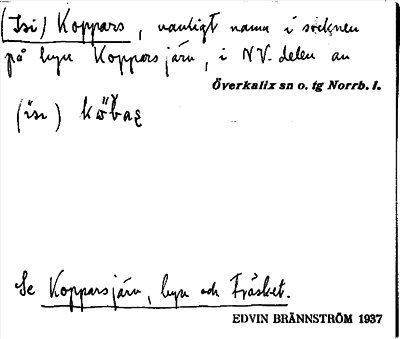 (Isi) Koppars, vanligt namn i socknen
på byn Kopparsjärv, i NV-delen av
Överkalix sn o. tg Norrb. l.
(ısı)
Se Kopparsjärv, byn och Träsket.
EDVIN BRÄNNSTRÖM 1937